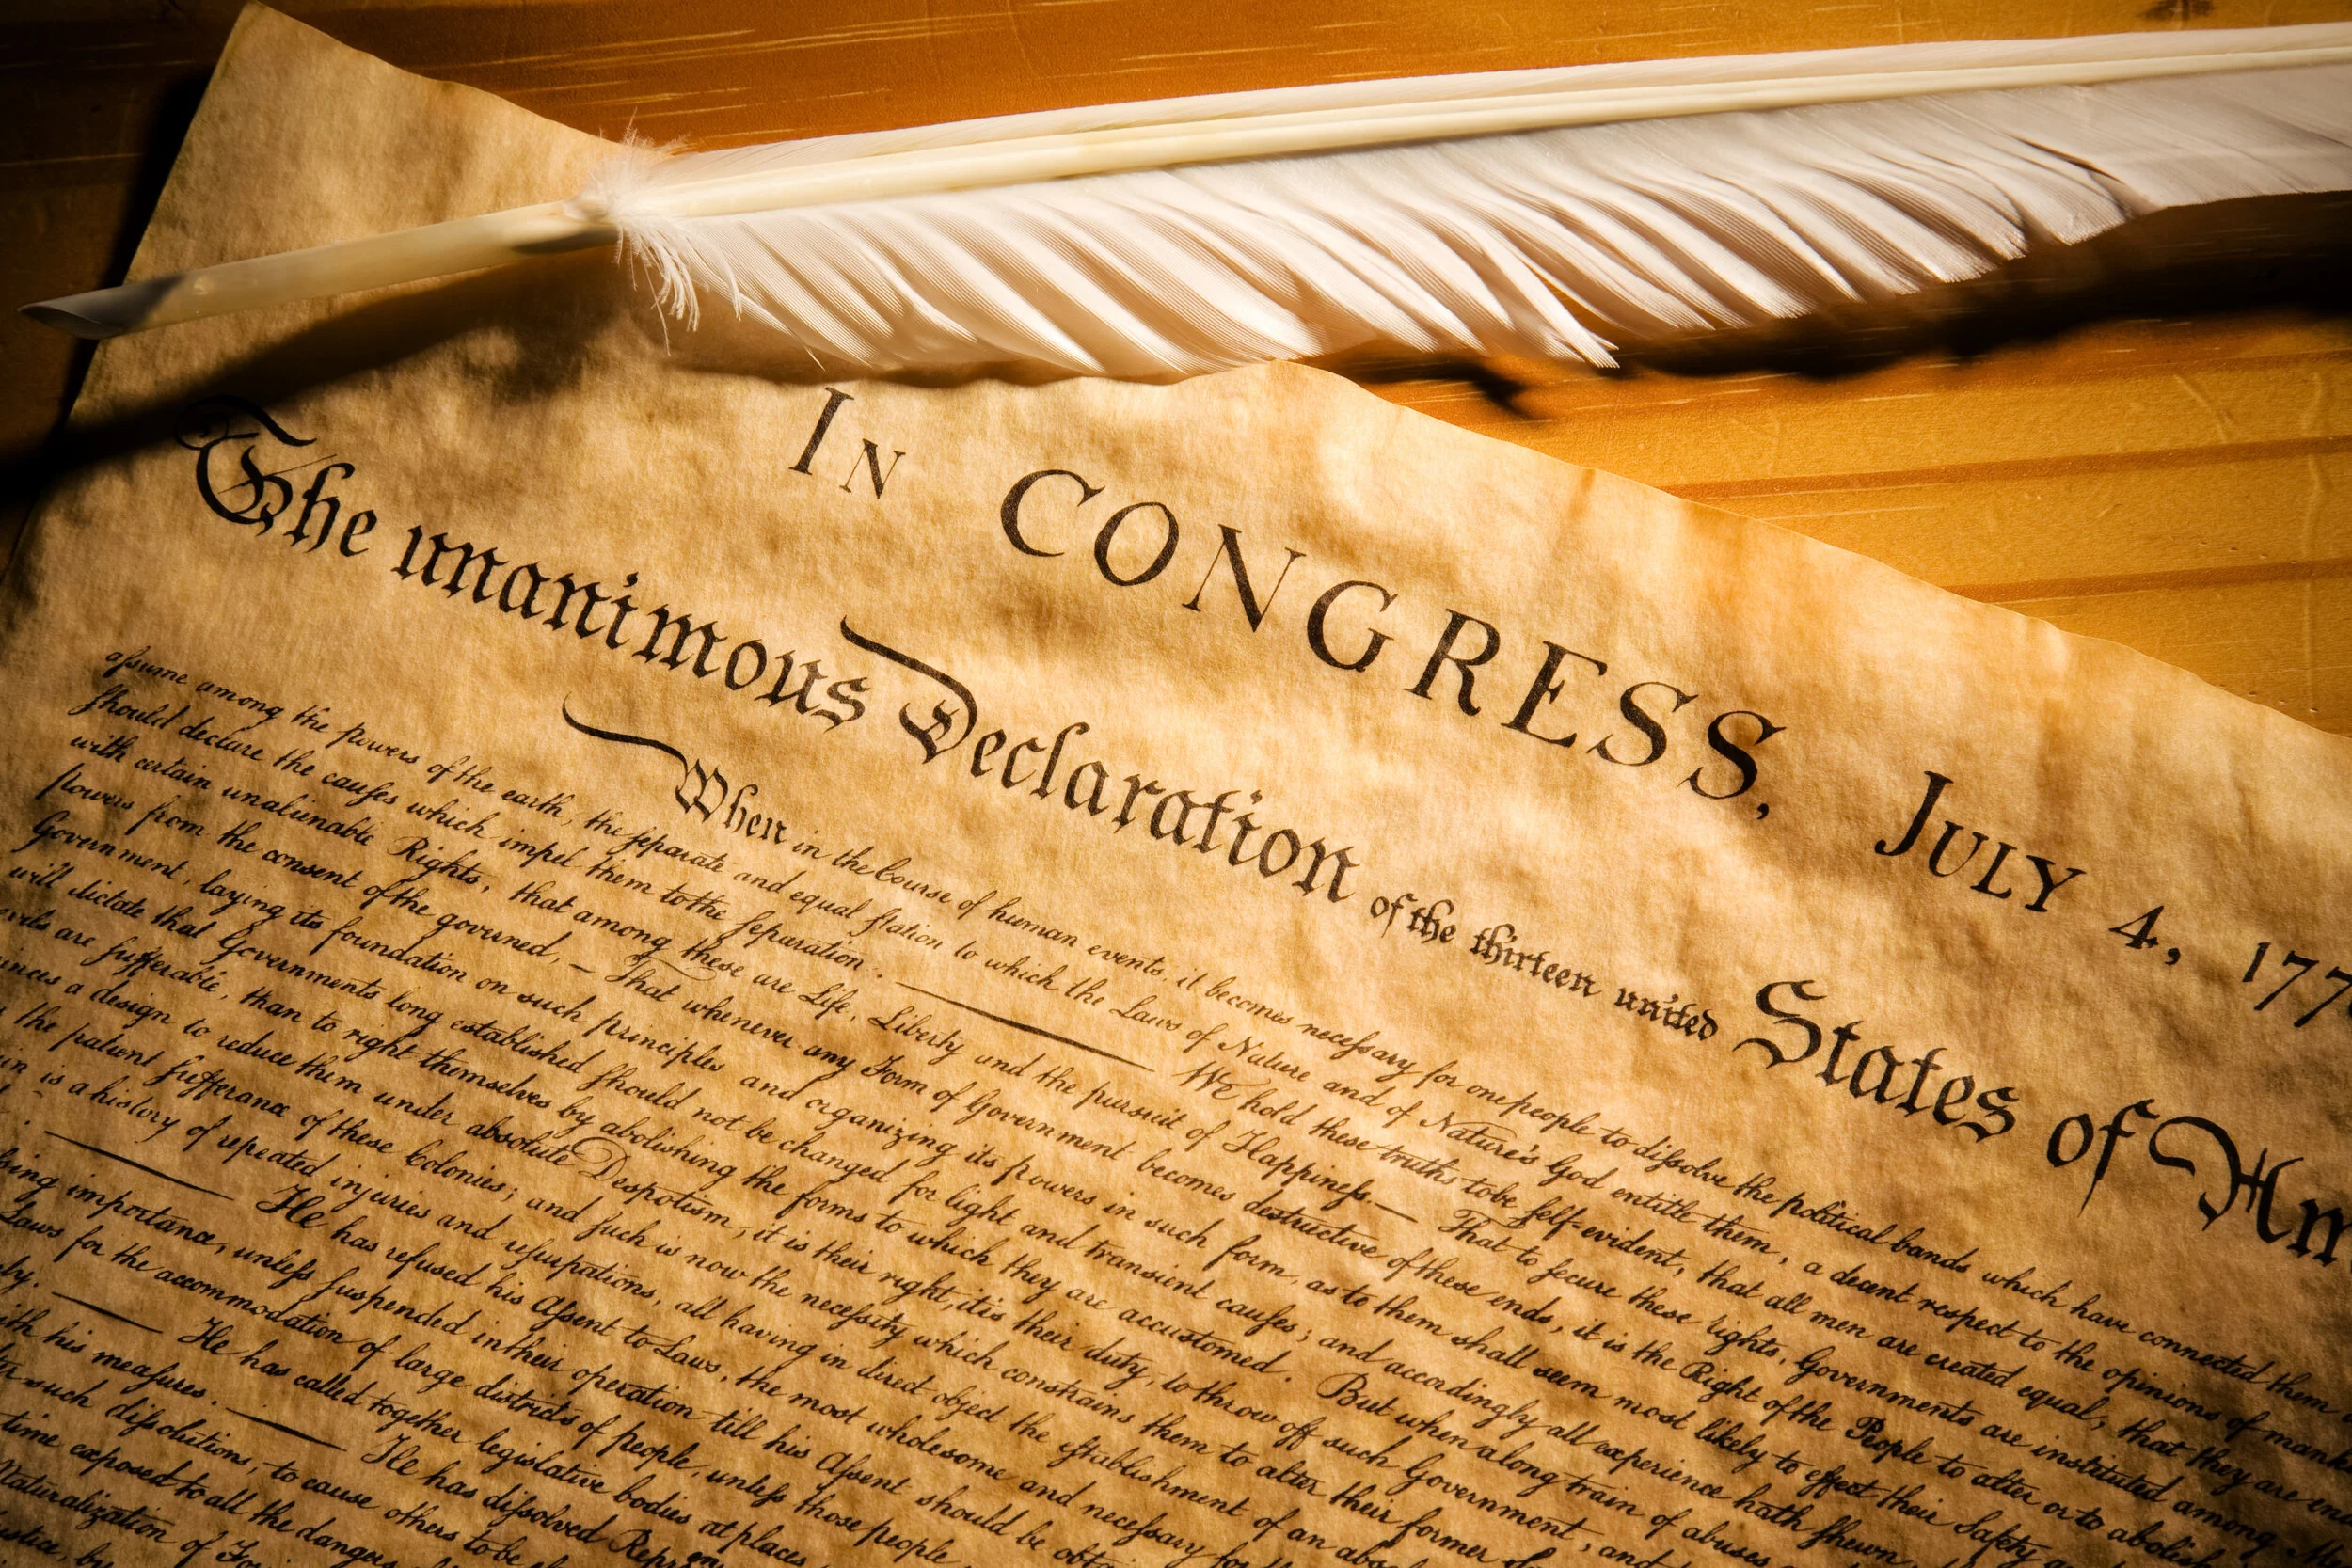 In CONGRESS, July 4, 177
The unanimous Declaration of the thirteen united States of Am
When in the Course of human events, it becomes necessary for one people to dissolve the political bands which have connected them
assume among the powers of the earth, the separate and equal station to which the Laws of Nature and of Nature's God entitle them, a decent respect to the opinions of mank
should declare the causes which impel them to the separation. We hold these truths to be self-evident, that all men are created equal, that they are en
with certain unalienable Rights, that among these are Life, Liberty and the pursuit of Happiness.— That to secure these rights, Governments are instituted among
powers from the consent of the governed, — That whenever any Form of Government becomes destructive of these ends, it is the Right of the People to alter or to aboli
Government, laying its foundation on such principles and organizing its powers in such form, as to them shall seem most likely to effect their Safety
will dictate that Governments long established should not be changed for light and transient causes; and accordingly all experience hath shewn
evils are sufferable, than to right themselves by abolishing the forms to which they are accustomed. But when a long train of abuses
inces a design to reduce them under absolute Despotism, it is their right, it is their duty, to throw off such Government, and
the patient sufferance of these Colonies; and such is now the necessity which constrains them to alter their former
in is a history of repeated injuries and usurpations, all having in direct object the establishment of an abso
He has refused his Assent to Laws, the most wholesome and necessary for
importance, unless suspended in their operation till his Assent should be obt
Laws for the accommodation of large districts of people, unless those people
He has called together legislative bodies at places
with his measures. He has dissolved Repre
such dissolutions, to cause others to be
time exposed to all the dangers
Naturalization of